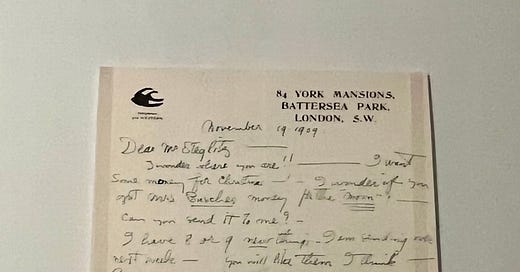 84 YORK MANSIONS,
BATTERSEA PARK,
LONDON, S.W.
November 19 1909
Dear Mr Steglitz
I wonder where you are!! — I want
Some money for Christmas — I wonder if you
got Mrs Busches money for the "Moon" —
Can you send it to me? —
I have 8 or 9 new things — I am sending
next week — you will like them I think —